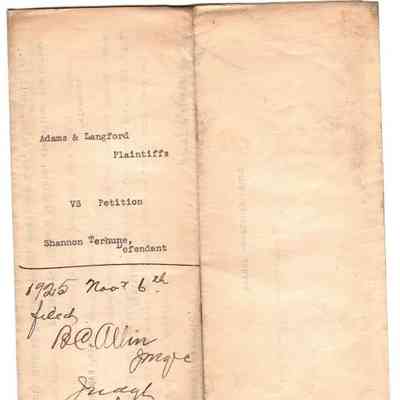 Adams & Langford
Plaintiffs
VS Petition
Shannon Terhune,
efendant
1925 Nov 6th
filed
B.C. Allin